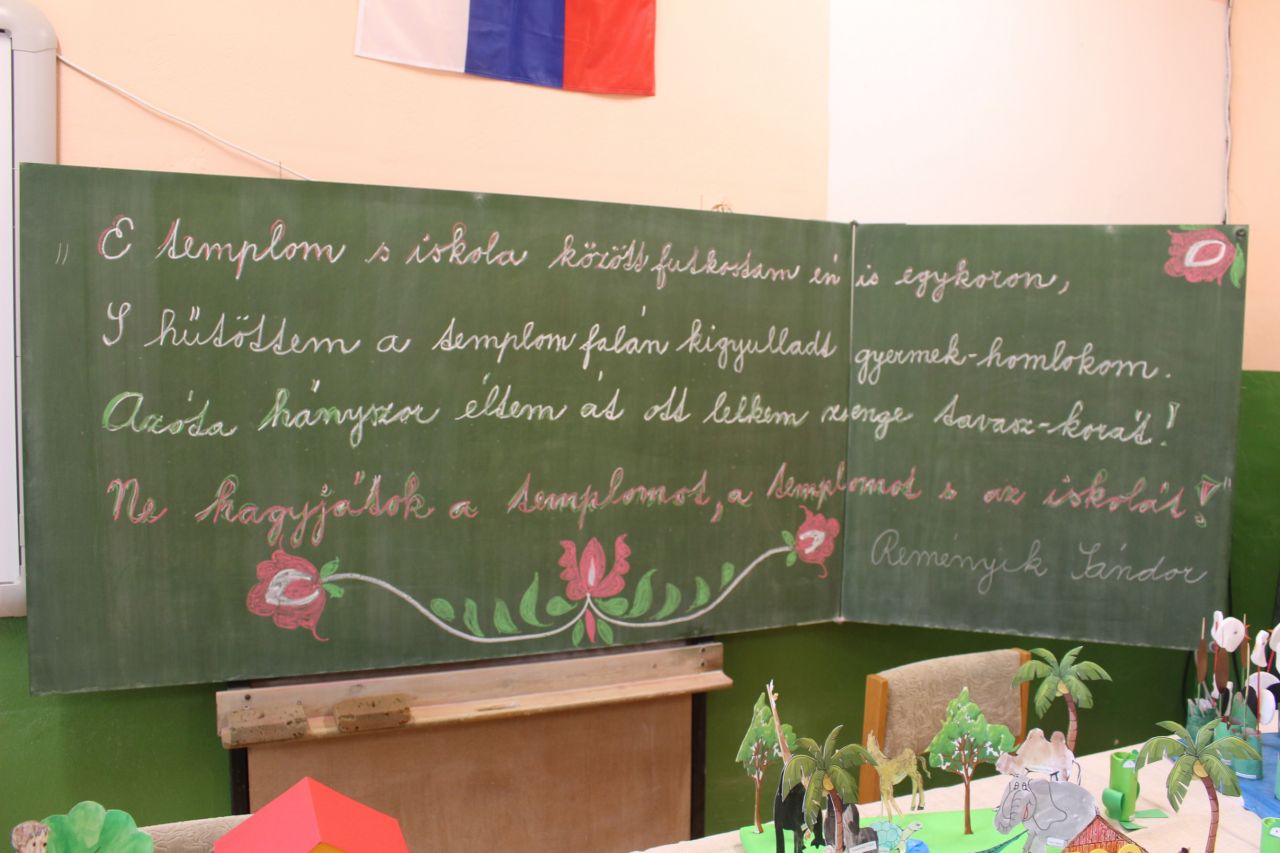 „ E templom s iskola között futkostam én is egykoron,
S hűtöttem a templom falán kigyulladt gyermek-homlokom.
Azóta hányszor éltem át ott lelkem zsenge tavasz-korát!
Ne hagyjátok a templomot, a templomot s az iskolát!"
Reményik Sándor